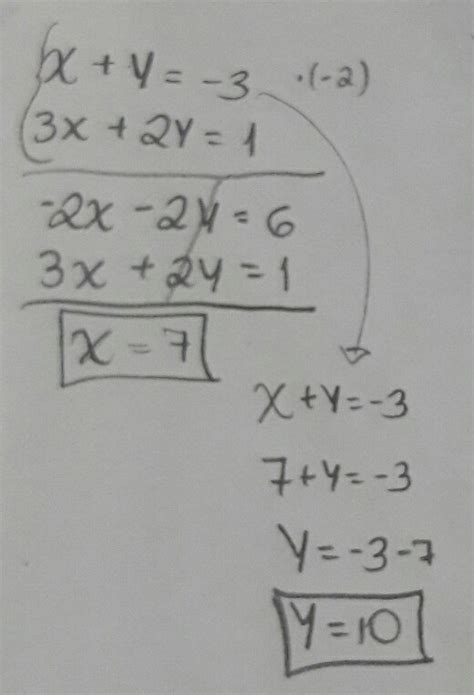 x + y = -3 ·(-2)
3x + 2y = 1
-2x - 2y = 6
3x + 2y = 1
x = 7
x + y = -3
7 + y = -3
y = -3 - 7
y = 10